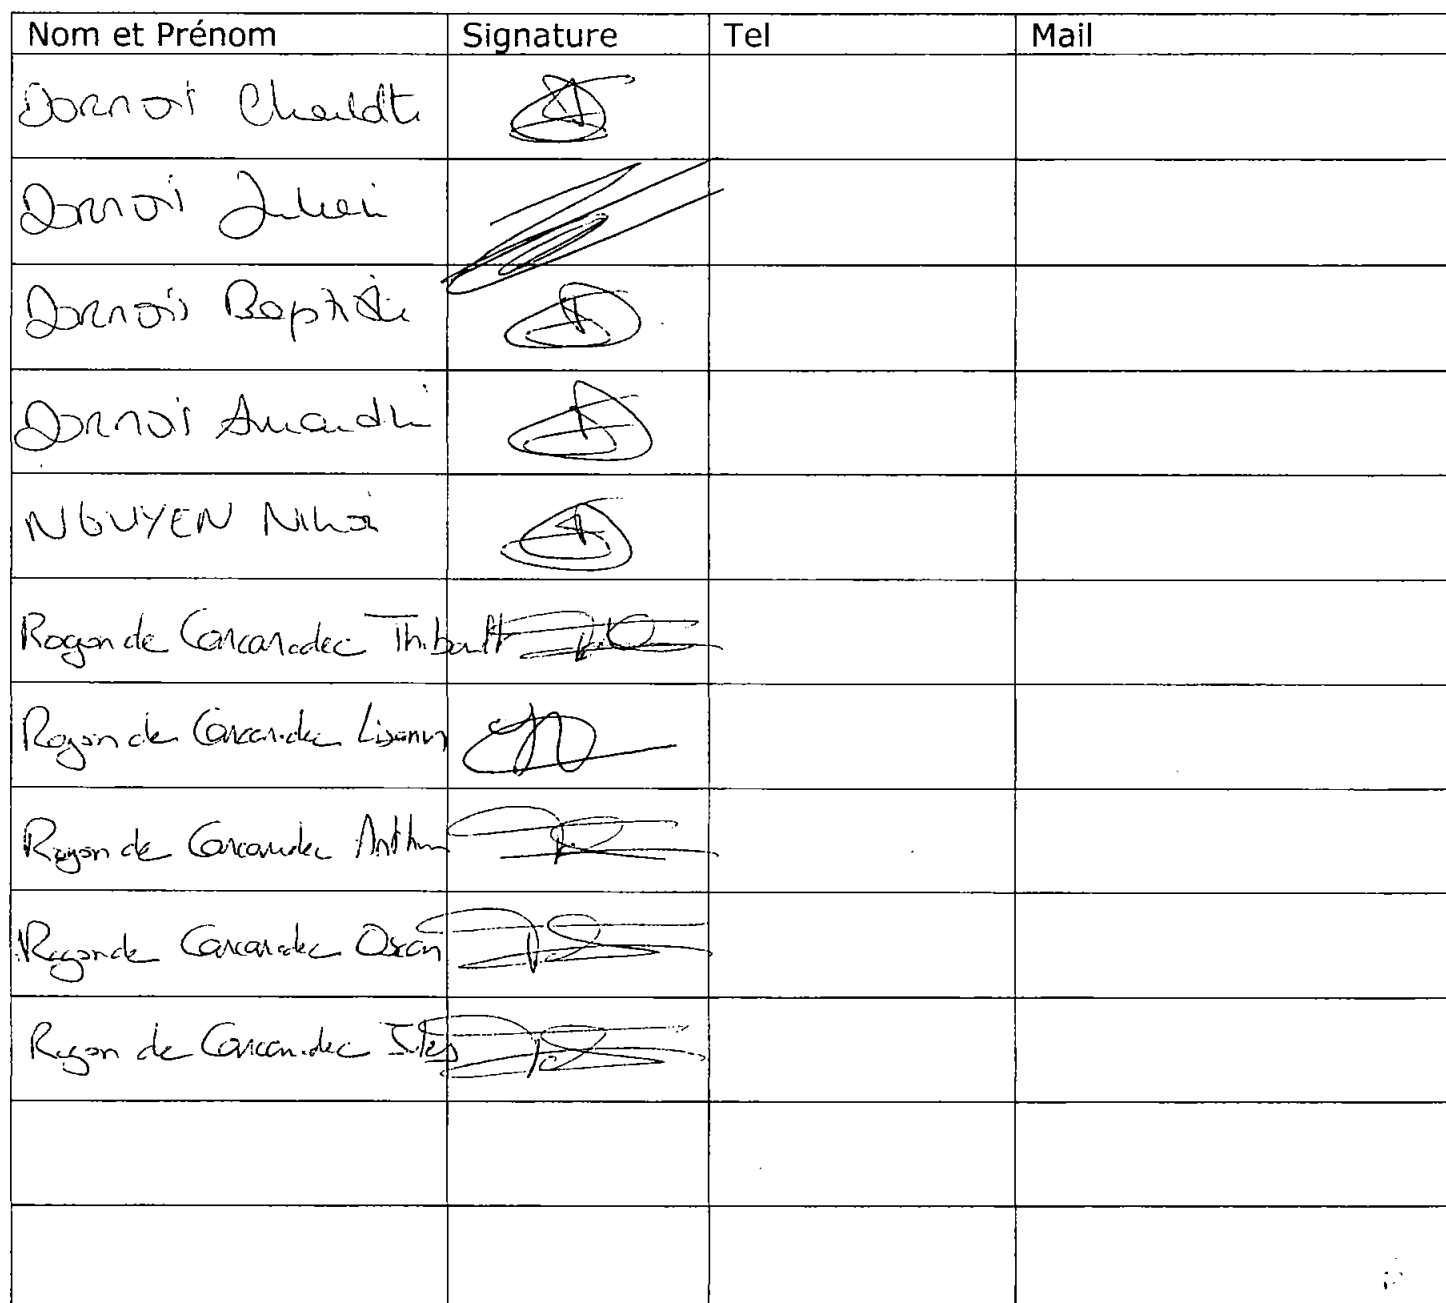 Nom et Prénom Signature Tel Mail
Dornois Charlotte
Dornois Julien
Dornois Baptiste
Dornois Amandine
NGUYEN
Rogon de Carcaradec Thibault
Rogon de Carcaradec
Rogon de Carcaradec Arthur
Rogon de Carcaradec Oscar
Rogon de Carcaradec Jules